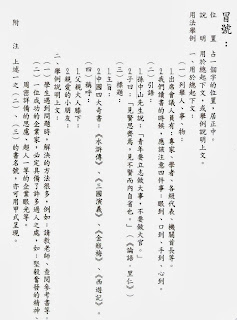 冒號：
位　置　占一個字的位置，居正中。
說　明　用於總起下文，或舉例說明上文。
用法舉例　一、用於總起下文
（一）列舉人、事、物
1.出席會議人員有：專家、學者、各級代表、機關首長等。
2.我們讀書的時候，應該注意四件事：眼到、口到、手到、心到。
（二）引語：
1.孫中山先生說：「青年要立志做大事，不要做大官。」
2.子曰：「見賢思齊焉，見不賢而內自省也。」（《論語．里仁》）
（三）標題：
1.主旨：
2.中國四大奇書：《水滸傳》、《三國演義》、《金瓶梅》、《西遊記》。
（四）稱呼：
1.父親大人膝下：
2.親愛的小朋友：
二、舉例說明上文：
（一）學生遇到問題時，解決的方法很多，例如：請教老師、查閱參考書等。
（二）一位成功的企業家，必定具備了許多過人之處，如：堅毅奮發的精神、
周密詳備的思慮、超人一等的企業眼光等。
附　注　上述一之（一）、（二）、（三）的書名號，亦可用甲式呈現。